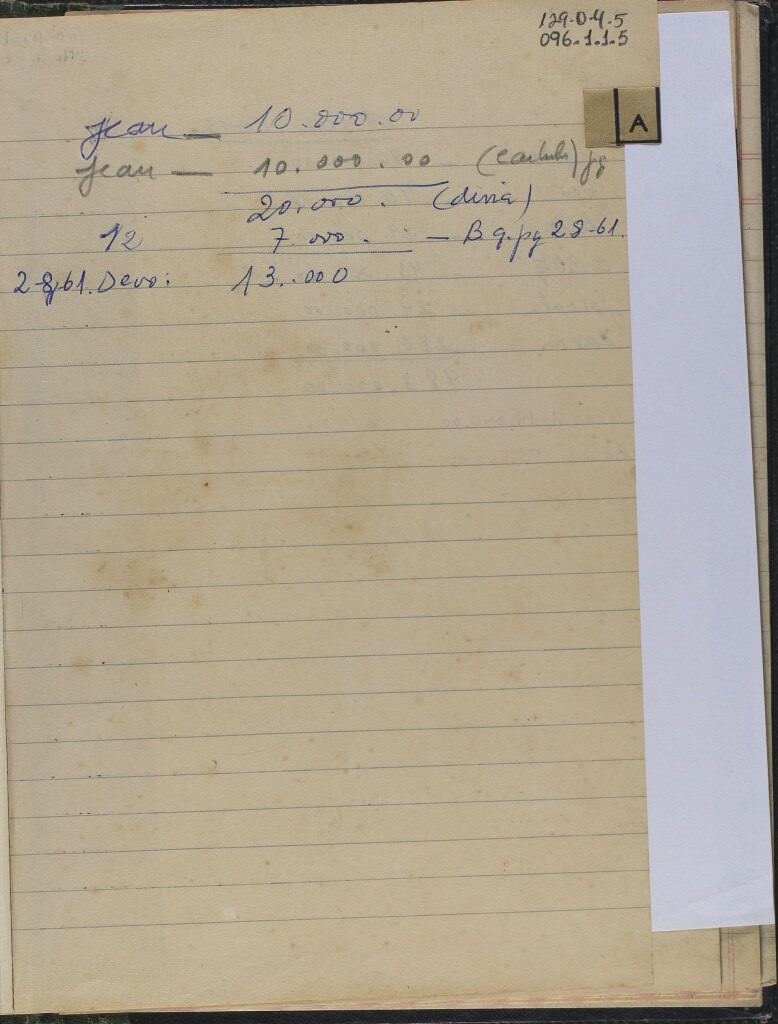 129.0.4.5
096.1.1.5
A
Jean — 10.000.00
Jean — 10.000.00 pg
20.000. (divia)
12 7.000. — B q. pg 2-8-61.
2-8-61. Devo: 13.000